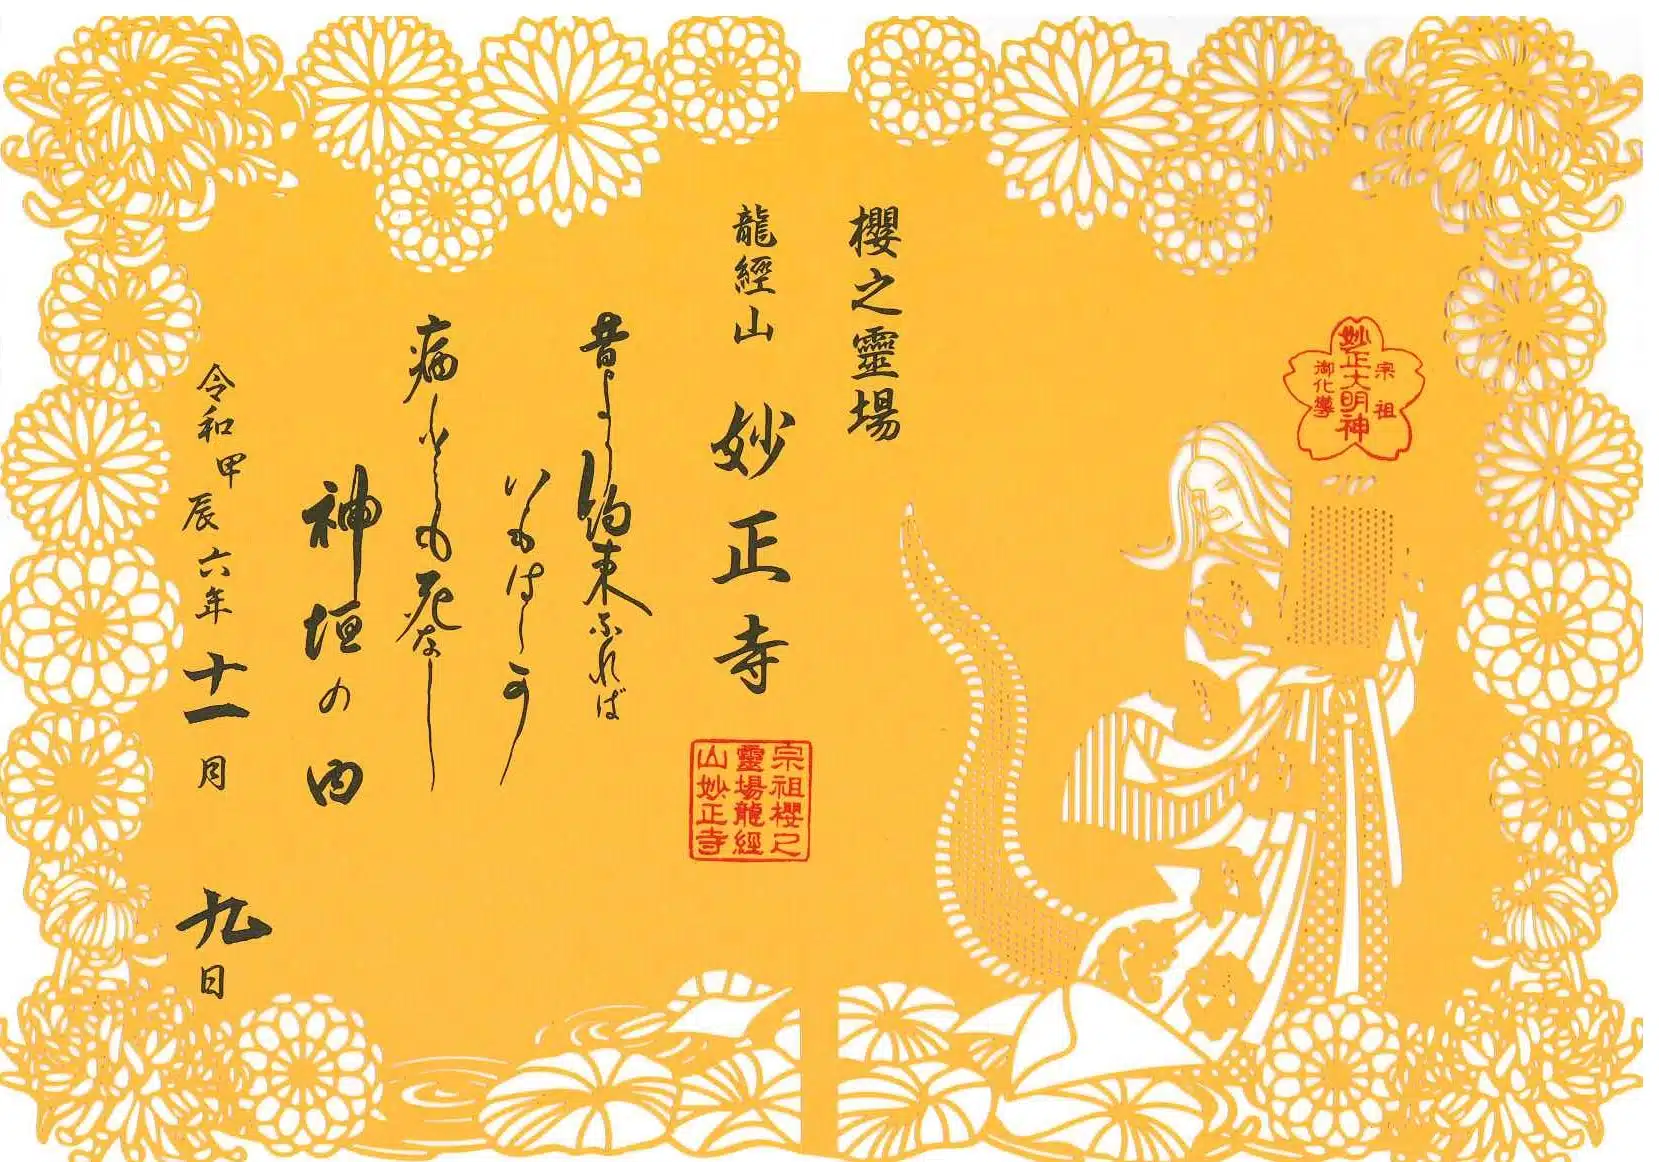 宗祖
妙正大明神
御化導
櫻之靈場
龍經山 妙正寺
宗祖櫻之
靈場龍經
山妙正寺
昔より約束なれば
いもはしか
病むとも死なし
神垣の内
令和甲辰六年十一月九日